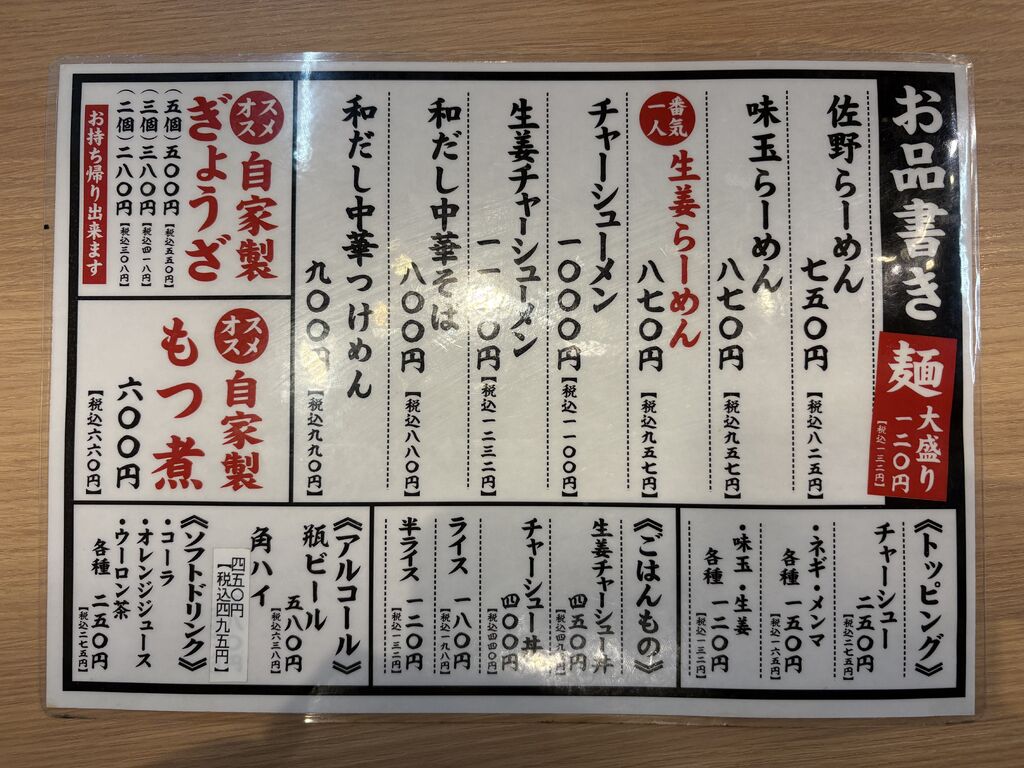 お品書き
麺大盛り
一二〇円
【税込一三二円】
佐野らーめん
七五〇円【税込八二五円】
味玉らーめん
八七〇円【税込九五七円】
一番人気
生姜らーめん
八七〇円【税込九五七円】
チャーシューメン
一〇〇〇円【税込一一〇〇円】
生姜チャーシューメン
一一二〇円【税込一二三二円】
和だし中華そば
八〇〇円【税込八八〇円】
和だし中華つけめん
九〇〇円【税込九九〇円】
オススメ
自家製
ぎょうざ
(五個)五〇〇円【税込五五〇円】
(三個)三八〇円【税込四一八円】
(二個)二八〇円【税込三〇八円】
お持ち帰り出来ます
オススメ
自家製
もつ煮
六〇〇円
【税込六六〇円】
《トッピング》
チャーシュー
二五〇円
【税込二七五円】
・ネギ・メンマ
各種 一五〇円
【税込一六五円】
・味玉・生姜
各種 一二〇円
【税込一三二円】
《ごはんもの》
生姜チャーシュー丼
四五〇円
【税込四九五円】
チャーシュー丼
四〇〇円
【税込四四〇円】
ライス 一八〇円
【税込一九八円】
半ライス 一二〇円
【税込一三二円】
《アルコール》
瓶ビール
五八〇円
【税込六三八円】
角ハイ
四五〇円
【税込四九五円】
《ソフトドリンク》
・コーラ
・オレンジジュース
・ウーロン茶
各種 二五〇円
【税込二七五円】